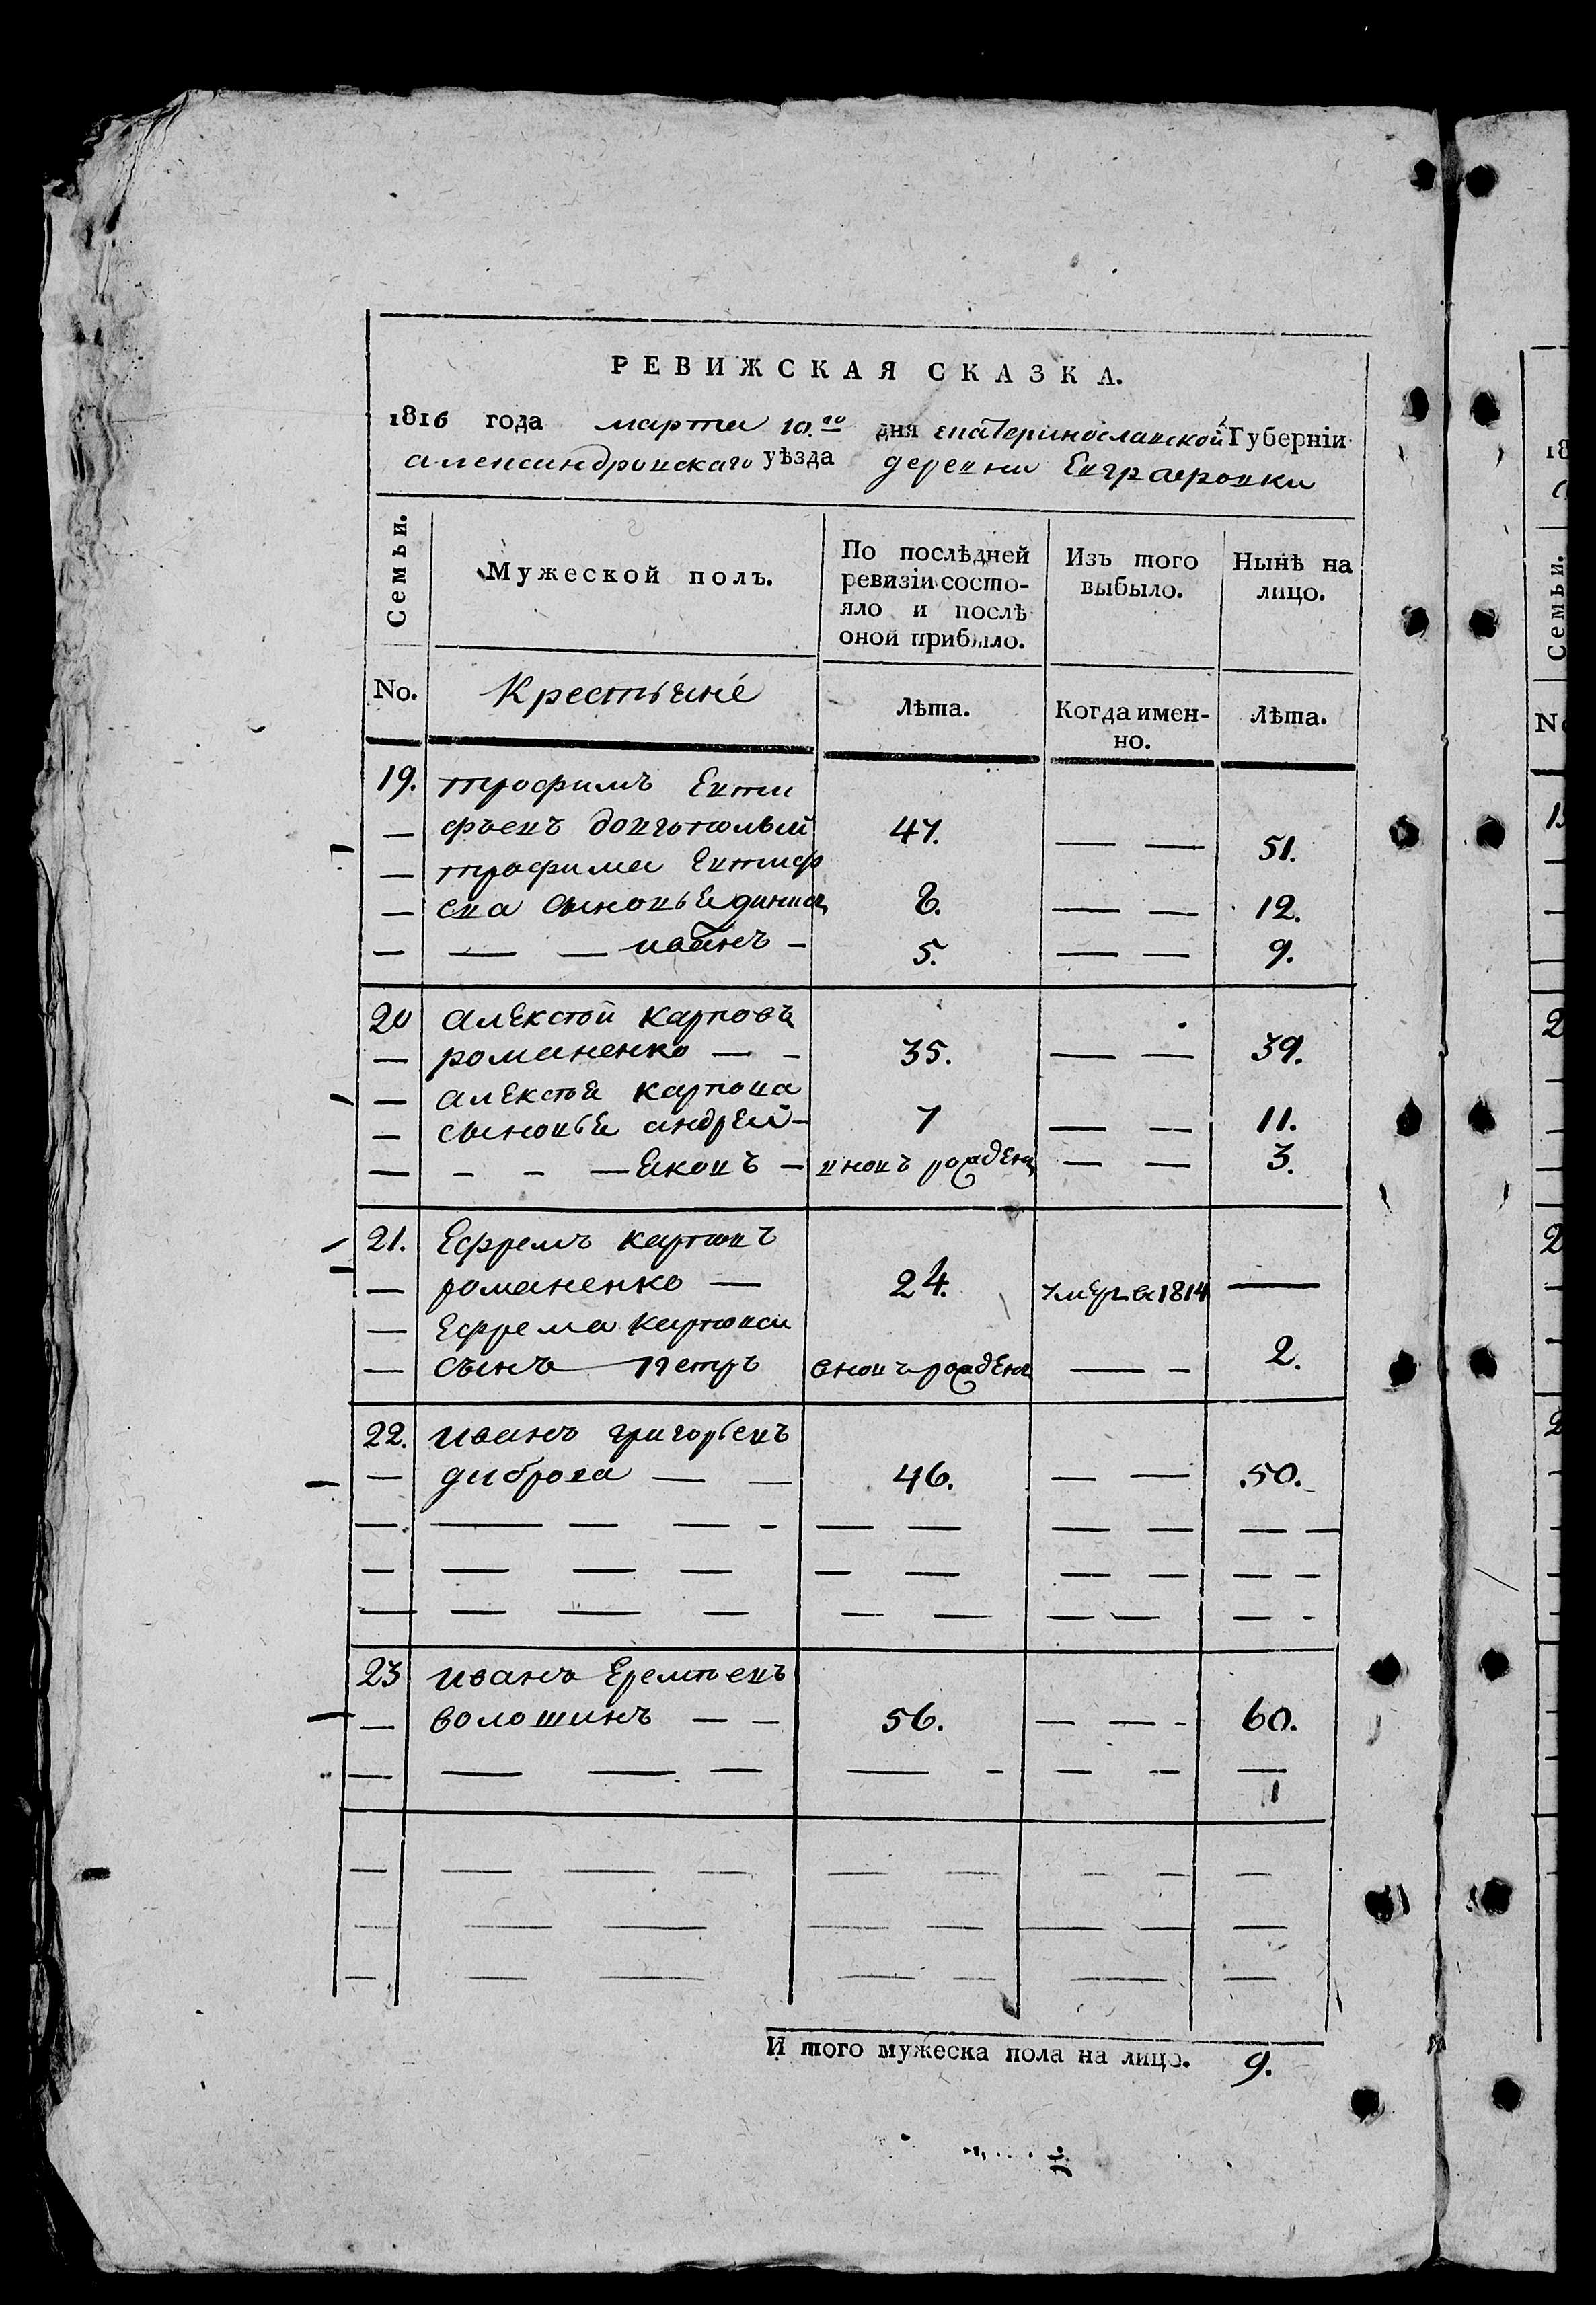 РЕВИЖСКАЯ СКАЗКА.
1816 года марта 10.го дня екатеринославской Губерніи
александровскаго уѣзда деревни Евграфовки
Семьи.
Мужеской полъ.
По послѣдней ревизіи состояло и послѣ оной прибыло.
Изъ того выбыло.
Нынѣ на лицо.
No. Крестьяне Лѣта. Когда именно. Лѣта.
19. трофимъ Евти
— фѣевъ довготолый 47. — — 51.
— трофима Евтиф
— ева сыновья 8. — — 12.
— — — иванъ — 5. — — 9.
20 алексѣй карповъ
— романенко — — 35. — — 39.
— алексѣя карпова
— сыновья андрей — 7 — — 11.
— — — — яковъ — вновь рожденъ — — 3.
21. Ефремъ карповъ
— романенко — 24. умерв 1814 —
— Ефрема карпова
— сынъ — петръ вновъ рожденъ — — 2.
22. иванъ григорьевъ
— диброва — — 46. — — 50.
23 иванъ Еремѣевъ
— волошинъ — — 56. — — - 60.
И того мужеска пола на лицо. 9.
18
Семьи.